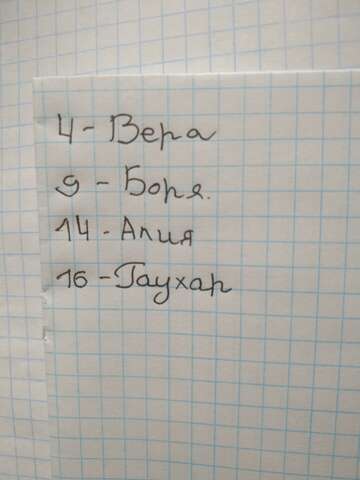 4 - Вера
9 - Боря.
14 - Алия
16 - Гаухар